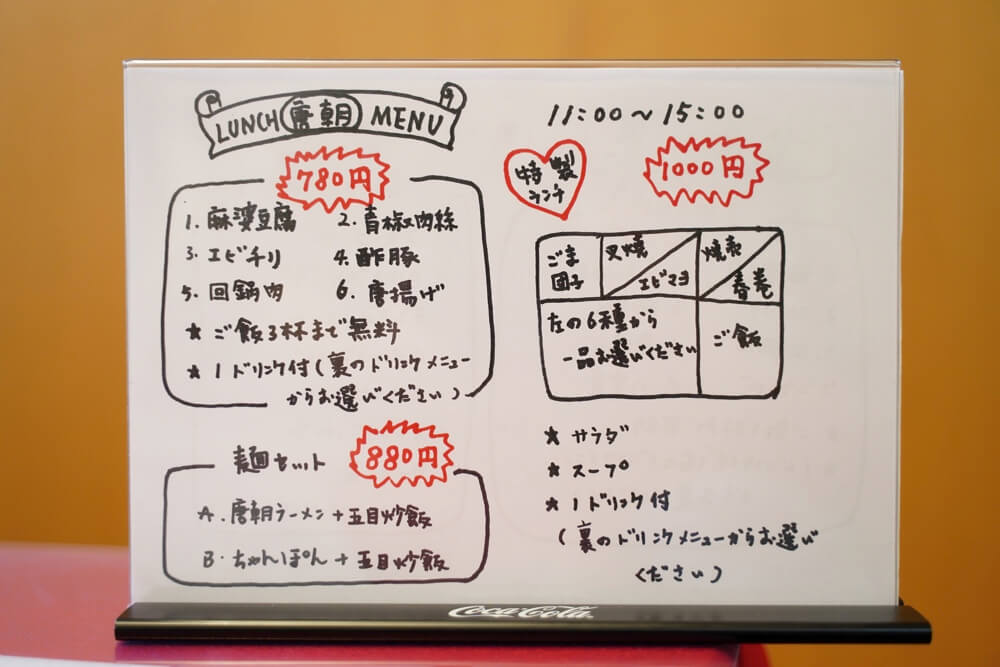 LUNCH 唐朝 MENU
780円
1. 麻婆豆腐 2. 青椒肉絲
3. エビチリ 4. 酢豚
5. 回鍋肉 6. 唐揚げ
★ ご飯3杯まで無料
★ 1ドリンク付(裏のドリンクメニュー
からお選びください)
麺セット 880円
A. 唐朝ラーメン+五目炒飯
B. ちゃんぽん+五目炒飯
11:00~15:00
特製
ランチ
1000円
ごま
団子
叉焼
エビマヨ
焼売
春巻
左の6種から
一品お選びください
ご飯
★ サラダ
★ スープ
★ 1ドリンク付
(裏のドリンクメニューからお選び
ください)
Coca-Cola